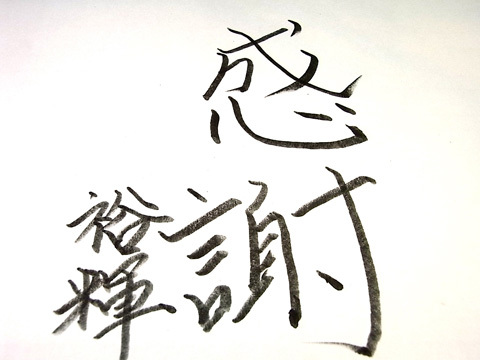 感謝
裕輝